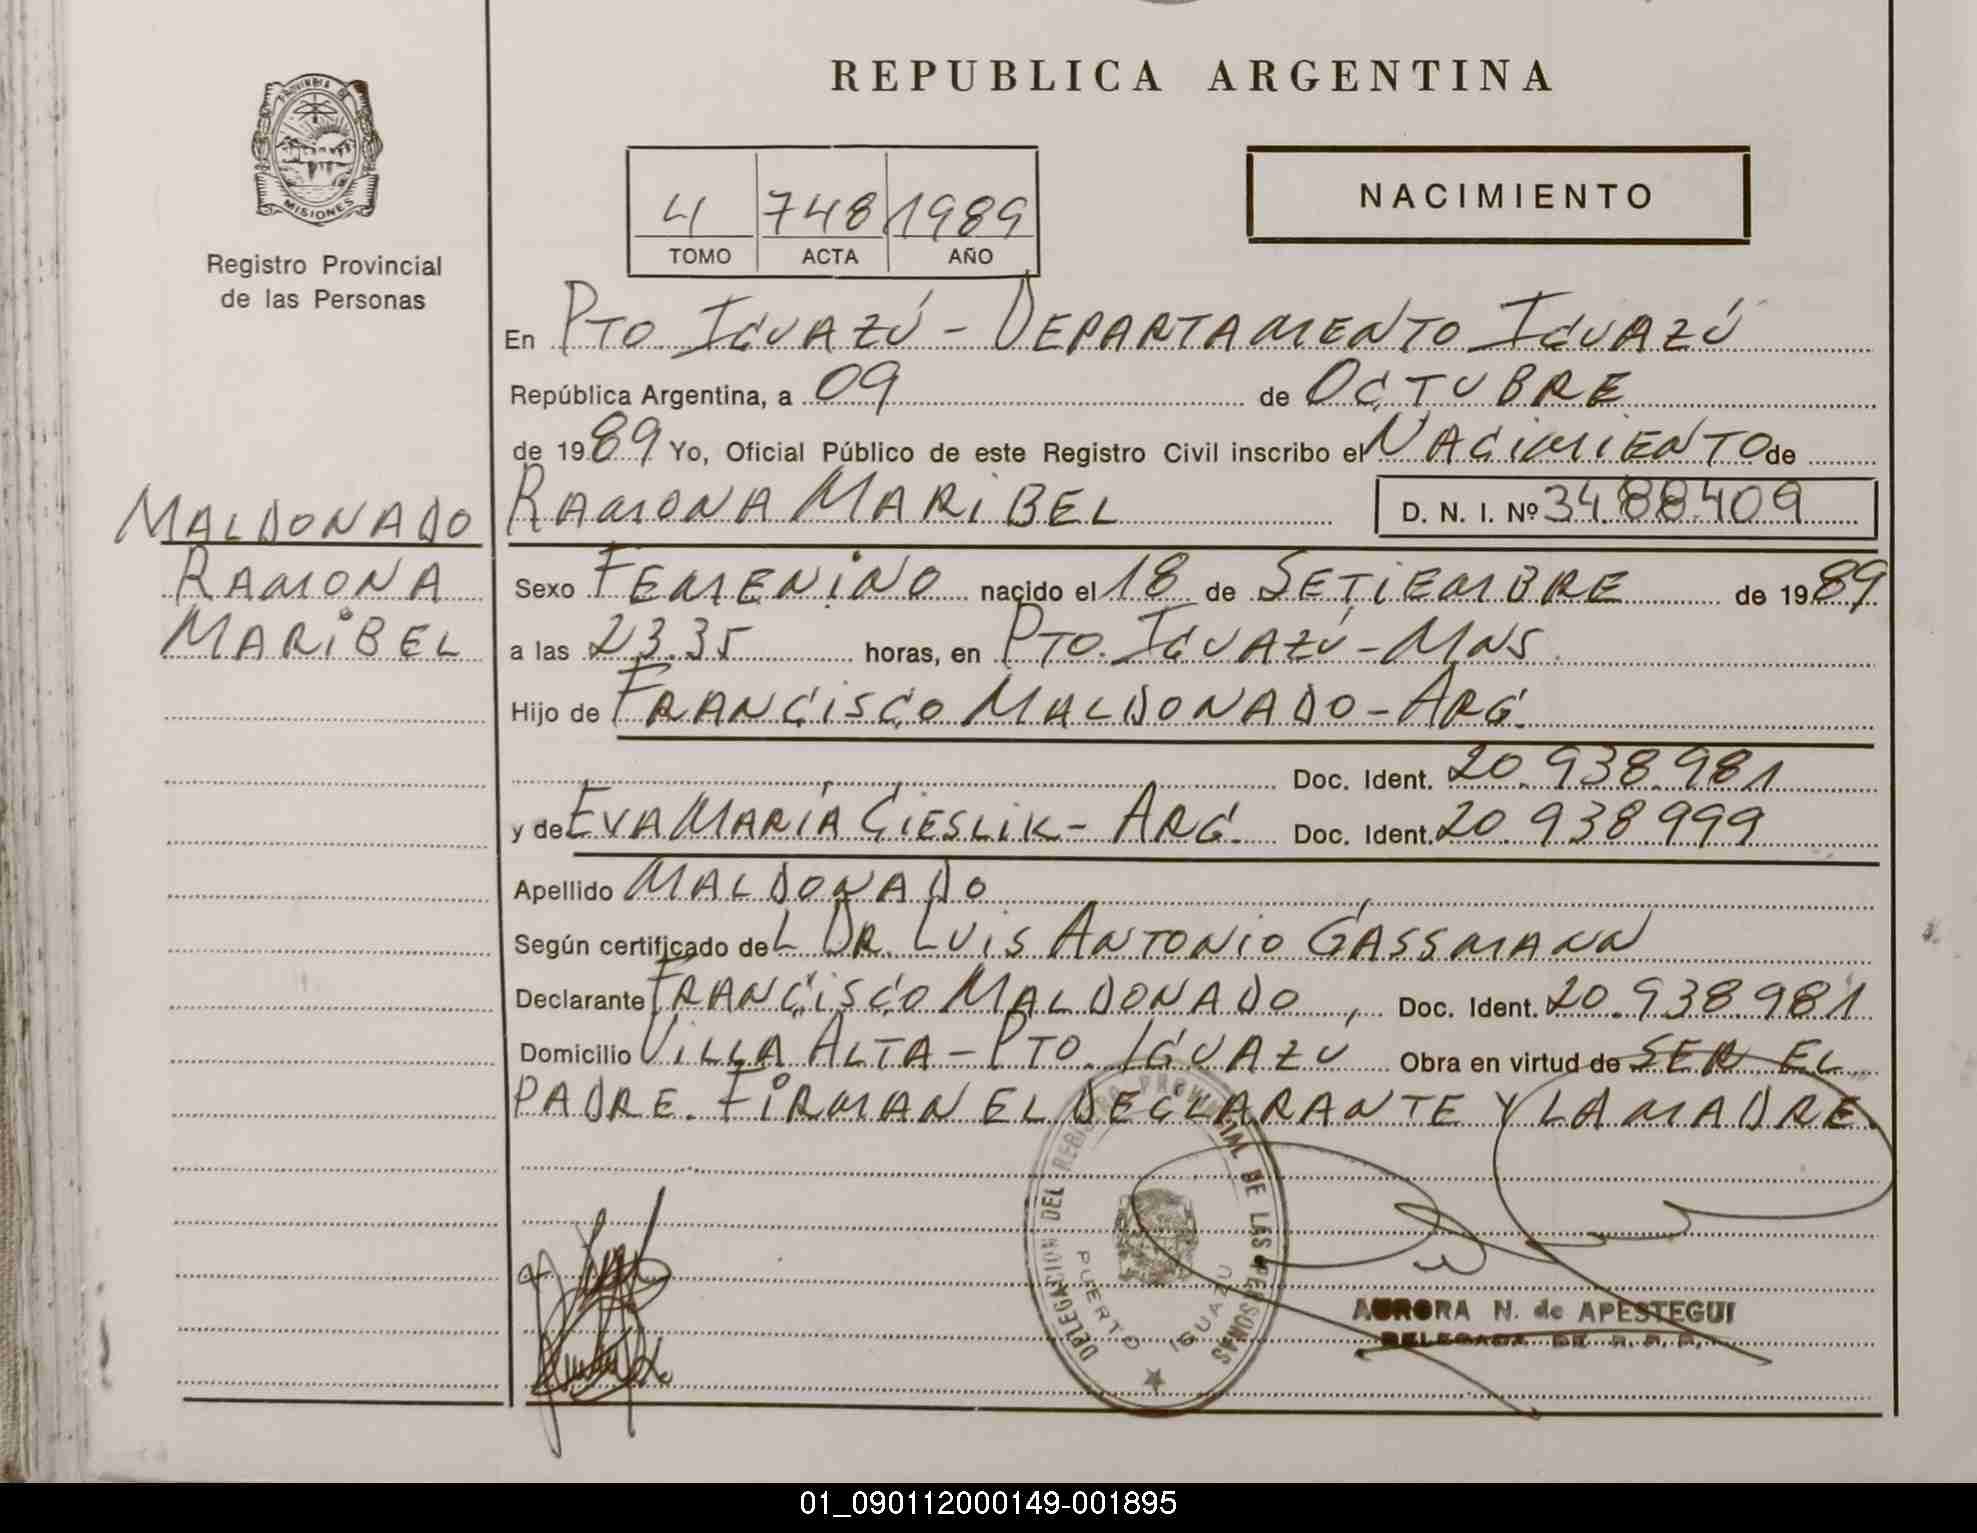 REPUBLICA ARGENTINA
PROVINCIA DE
MISIONES
Registro Provincial
de las Personas
4 748 1989
TOMO ACTA AÑO
NACIMIENTO
En PTO. IGUAZÚ - DEPARTAMENTO IGUAZÚ
República Argentina, a 09 de OCTUBRE
de 1989 Yo, Oficial Público de este Registro Civil inscribo el NACIMIENTO de
MALDONADO
RAMONA
MARIBEL
RAMONA MARIBEL D. N. I. Nº 34.88.409
Sexo FEMENINO nacido el 18 de SETIEMBRE de 1989
a las 23.35 horas, en PTO. IGUAZÚ - MNS.
Hijo de FRANCISCO MALDONADO - ARG.
Doc. Ident. 20.938.981
y de EVA MARÍA CIESLIK - ARG. Doc. Ident. 20.938.999
Apellido MALDONADO
Según certificado del DR. LUIS ANTONIO GASSMANN
Declarante FRANCISCO MALDONADO, Doc. Ident. 20.938.981
Domicilio VILLA ALTA - PTO. IGUAZÚ Obra en virtud de SER EL
PADRE. FIRMAN EL DECLARANTE Y LA MADRE.
DELEGACION DEL REGISTRO PROVINCIAL DE LAS PERSONAS
PUERTO IGUAZU
AURORA N. de APESTEGUI
DELEGADA DE R. P. P.
01_090112000149-001895